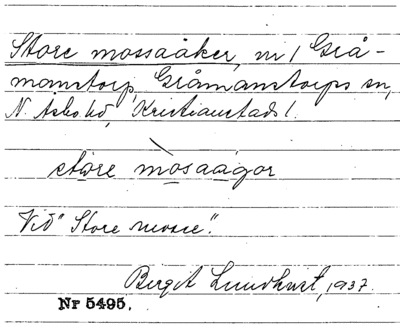 Store mossaåker, nr 1 Grå-
manstorp, Gråmanstorps sn,
N. Åsbo hd, Kristianstads l.
store mosaågor
Vid "Store mosse".
Bergit Lundhurst, 1937.
Nr 5495.